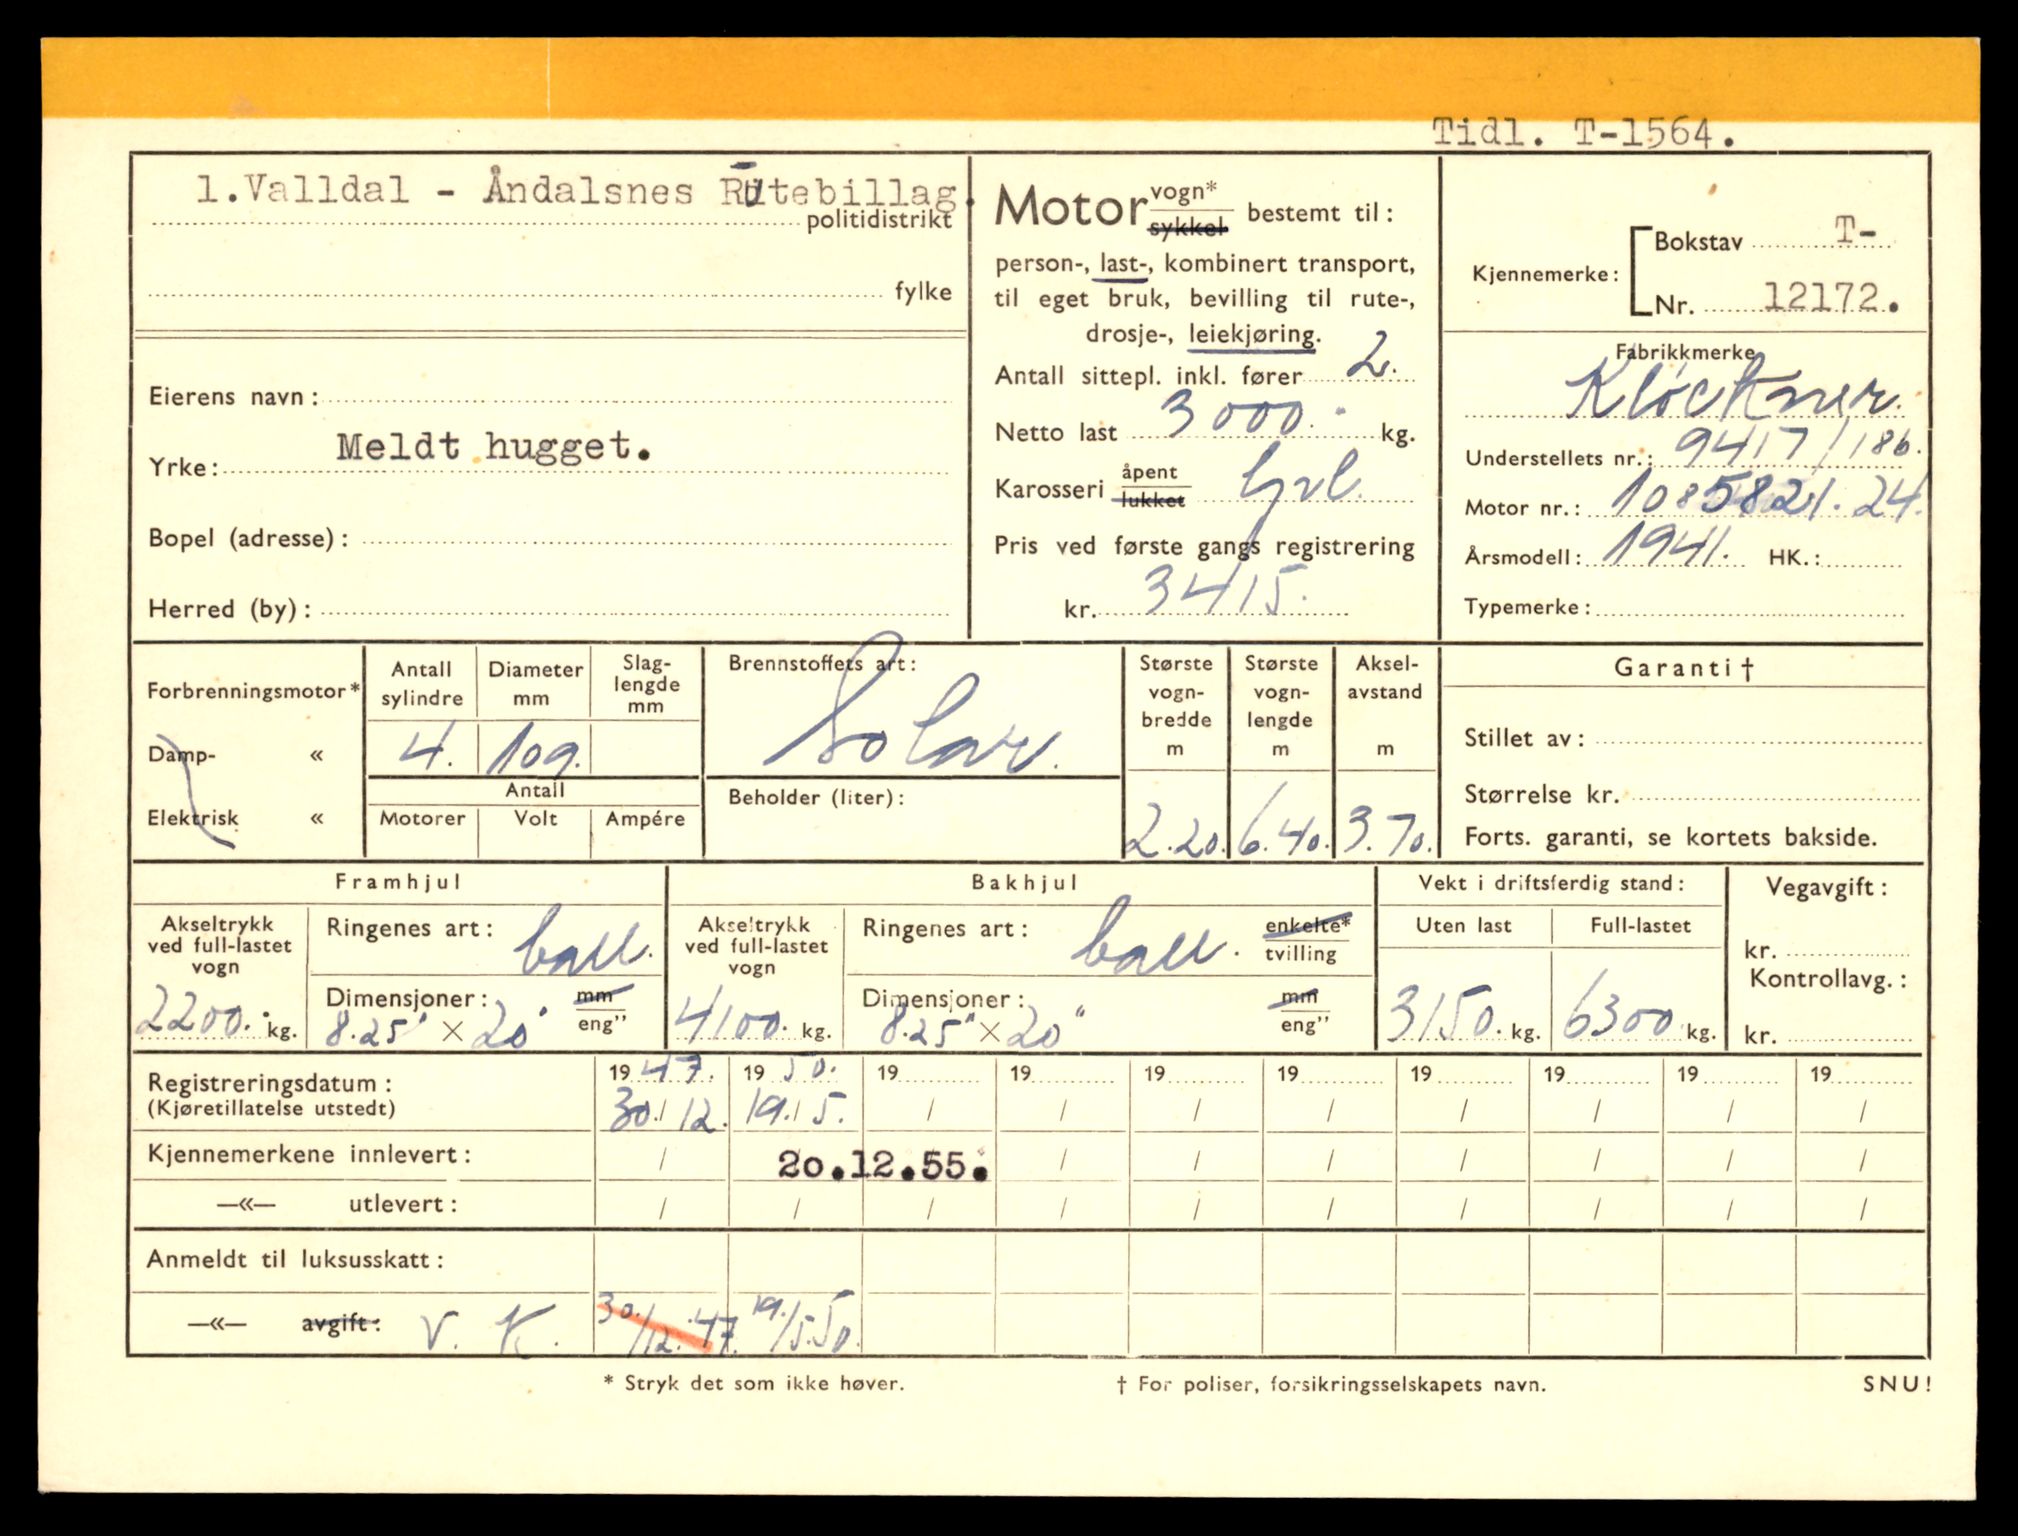 Tidl. T-1564.
1.Valldal - Åndalsnes Rutebillag.
politidistrikt
fylke
Eierens navn:
Meldt hugget.
Yrke:
Bopel (adresse):
Herred (by):
Motor vogn* sykkel bestemt til:
person-, last-, kombinert transport,
til eget bruk, bevilling til rute-,
drosje-, leiekjøring.
Antall sittepl. inkl. fører 2.
Netto last 3000.- kg.
Karosseri åpent lukket
Pris ved første gangs registrering
kr. 3415.
Kjennemerke: Bokstav T-
Nr. 12172.
Fabrikkmerke
Kløckner.
Understellets nr.: 9417/186.
Motor nr.: 1085821.24.
Årsmodell: 1941. HK.:
Typemerke:
Forbrenningsmotor*
Damp- «
Elektrisk «
Antall sylindre
Diameter mm
Slag-lengde mm
4. 109.
Antall
Motorer Volt Ampére
Brennstoffets art:
Solar.
Beholder (liter):
Største vogn-bredde m
Største vogn-lengde m
Aksel-avstand m
2.20. 6.40. 3.70.
Garanti †
Stillet av:
Størrelse kr.
Forts. garanti, se kortets bakside.
Framhjul
Akseltrykk ved full-lastet vogn
2200. kg.
Ringenes art: ball.
Dimensjoner: mm eng"
8.25" × 20"
Bakhjul
Akseltrykk ved full-lastet vogn
4100. kg.
Ringenes art: ball. enkelte* tvilling
Dimensjoner: mm eng"
8.25" × 20"
Vekt i driftsferdig stand:
Uten last Full-lastet
3150. kg. 6300 kg.
Vegavgift:
kr.
Kontrollavg.:
kr.
Registreringsdatum: 1947. 1950. 19 19 19 19 19 19 19 19
(Kjøretillatelse utstedt) 30./12. 19./5. / / / / / / / /
Kjennemerkene innlevert: / 20.12.55. / / / / / / /
—«— utlevert: / / / / / / / / / /
Anmeldt til luksusskatt:
—«— avgift: V. K. 30./12.47. 19./5.50.
* Stryk det som ikke høver.
† For poliser, forsikringsselskapets navn.
SNU!